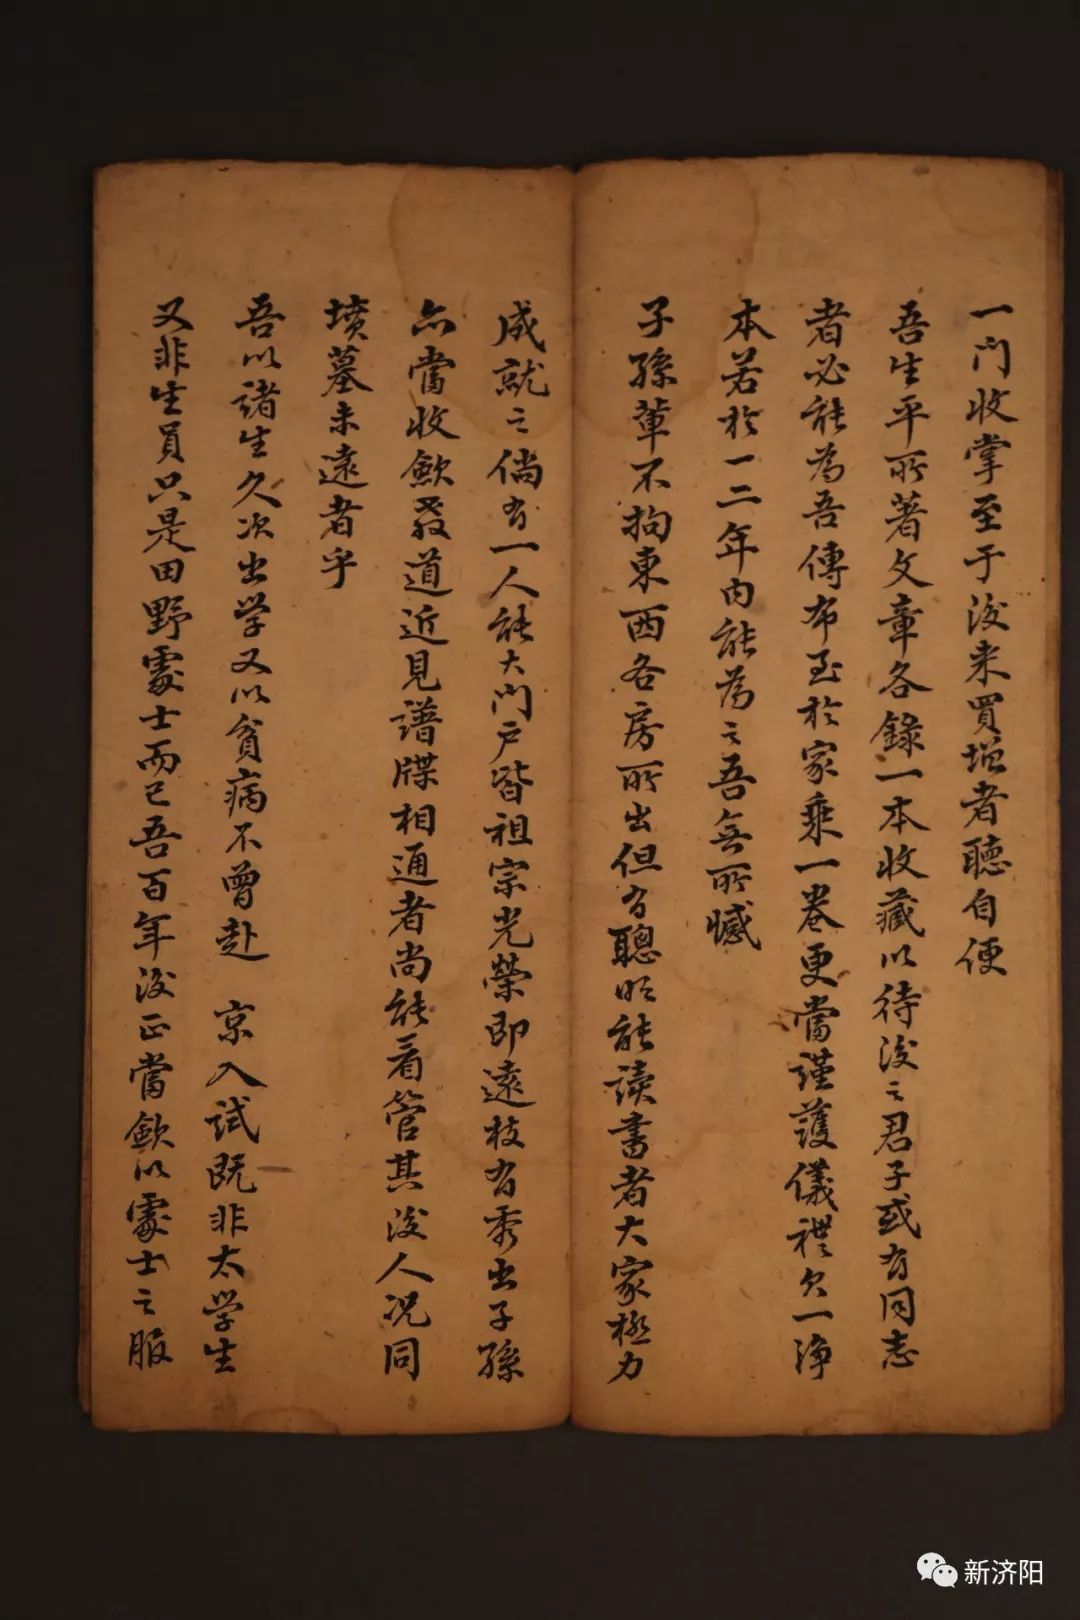 一門收掌至于後来買增者聽自便
吾生平所著文章各錄一本收藏以待後之君子或有同志
者必能為吾傳布至於家乘一卷更當謹護儀禮欠一净
本若於一二年内能為之吾無所憾
子孫輩不拘東西各房所出但有聰明能讀書者大家極力
成就之倘有一人能大門户皆祖宗光榮即遠枝有秀出子孫
亦當收歛教道近見譜牒相通者尚能看管其後人况同
墳墓未遠者乎
吾以諸生久次出学又以貧病不曾赴　京入試既非太学生
又非生員只是田野處士而已吾百年後正當歛以處士之服
新济阳